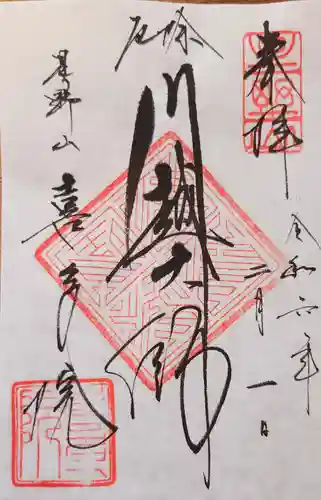 奉拝
令和六年
二月一日
厄除
川越大師
星野山
喜多院